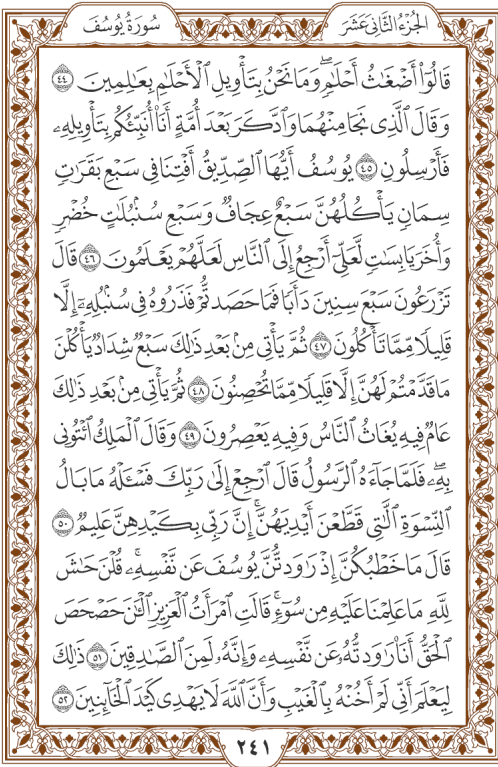 الجُزْءُ الثَّانِي عَشَرَ
سُورَةُ يُوسُفَ
قَالُوٓا۟ أَضْغَٰثُ أَحْلَٰمٍۢ ۖ وَمَا نَحْنُ بِتَأْوِيلِ ٱلْأَحْلَٰمِ بِعَٰلِمِينَ ٤٤
وَقَالَ ٱلَّذِى نَجَا مِنْهُمَا وَٱدَّكَرَ بَعْدَ أُمَّةٍ أَنَا۠ أُنَبِّئُكُم بِتَأْوِيلِهِۦ
فَأَرْسِلُونِ ٤٥ يُوسُفُ أَيُّهَا ٱلصِّدِّيقُ أَفْتِنَا فِى سَبْعِ بَقَرَٰتٍۢ
سِمَانٍۢ يَأْكُلُهُنَّ سَبْعٌ عِجَافٌۭ وَسَبْعِ سُنۢبُلَٰتٍ خُضْرٍۢ
وَأُخَرَ يَابِسَٰتٍۢ لَّعَلِّىٓ أَرْجِعُ إِلَى ٱلنَّاسِ لَعَلَّهُمْ يَعْلَمُونَ ٤٦ قَالَ
تَزْرَعُونَ سَبْعَ سِنِينَ دَأَبًۭا فَمَا حَصَدتُّمْ فَذَرُوهُ فِى سُنۢبُلِهِۦٓ إِلَّا
قَلِيلًۭا مِّمَّا تَأْكُلُونَ ٤٧ ثُمَّ يَأْتِى مِنۢ بَعْدِ ذَٰلِكَ سَبْعٌۭ شِدَادٌۭ يَأْكُلْنَ
مَا قَدَّمْتُمْ لَهُنَّ إِلَّا قَلِيلًۭا مِّمَّا تُحْصِنُونَ ٤٨ ثُمَّ يَأْتِى مِنۢ بَعْدِ ذَٰلِكَ
عَامٌۭ فِيهِ يُغَاثُ ٱلنَّاسُ وَفِيهِ يَعْصِرُونَ ٤٩ وَقَالَ ٱلْمَلِكُ ٱئْتُونِى
بِهِۦ ۖ فَلَمَّا جَآءَهُ ٱلرَّسُولُ قَالَ ٱرْجِعْ إِلَىٰ رَبِّكَ فَسْـَٔلْهُ مَا بَالُ
ٱلنِّسْوَةِ ٱلَّٰتِى قَطَّعْنَ أَيْدِيَهُنَّ ۚ إِنَّ رَبِّى بِكَيْدِهِنَّ عَلِيمٌۭ ٥٠
قَالَ مَا خَطْبُكُنَّ إِذْ رَٰوَدتُّنَّ يُوسُفَ عَن نَّفْسِهِۦ ۚ قُلْنَ حَٰشَ
لِلَّهِ مَا عَلِمْنَا عَلَيْهِ مِن سُوٓءٍۢ ۚ قَالَتِ ٱمْرَأَتُ ٱلْعَزِيزِ ٱلْـَٰٔنَ حَصْحَصَ
ٱلْحَقُّ أَنَا۠ رَٰوَدتُّهُۥ عَن نَّفْسِهِۦ وَإِنَّهُۥ لَمِنَ ٱلصَّٰدِقِينَ ٥١ ذَٰلِكَ
لِيَعْلَمَ أَنِّى لَمْ أَخُنْهُ بِٱلْغَيْبِ وَأَنَّ ٱللَّهَ لَا يَهْدِى كَيْدَ ٱلْخَآئِنِينَ ٥٢
٢٤١